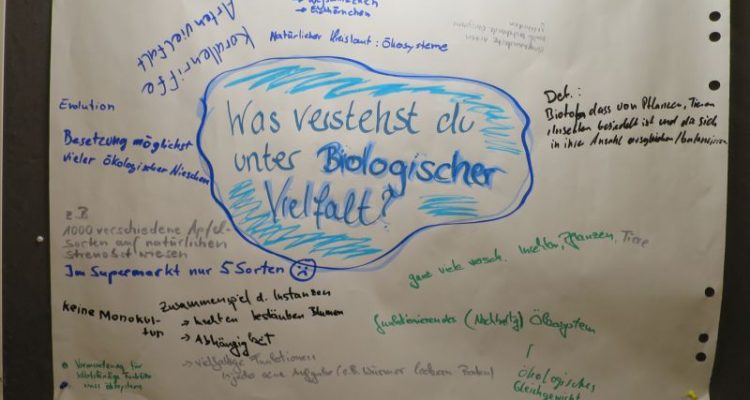 → Eichhörnchen
Artenvielfalt
Korallenriffe
Natürlicher Kreislauf: Ökosysteme
Evolution
Besetzung möglichst
vieler ökologischer Nieschen
Was verstehst du
unter Biologischer
Vielfalt?
Def.:
Biotop, dass von Pflanzen, Tieren
Insekten besiedelt ist und da sich
in ihrer Anzahl ausgleichen/balancieren
z.B
1000 verschiedene Apfel-
sorten auf natürlichen
Streuobstwiesen
Im Supermarkt nur 5 Sorten
ganz viele versch. Insekten, Pflanzen, Tiere
keine Monokul-
tur
Zusammenspiel d. Instanzen
→ Insekten bestäuben Blumen
→ Abhängigkeit
→ vielfältige Funktionen
(z.B. Würmer lockern Boden)
funktionierendes (Nachhaltig) Ökosystem
ökologisches
Gleichgewicht
Voraussetzung für
eines Ökosystems